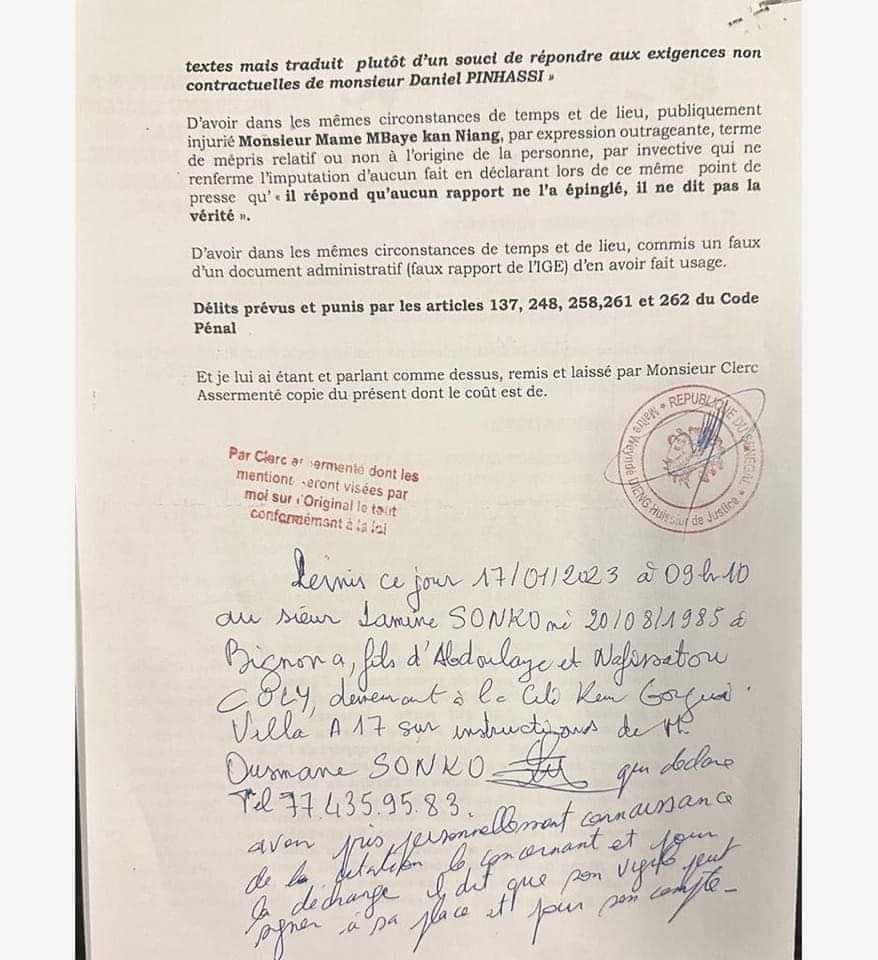 textes mais traduit plutôt d'un souci de répondre aux exigences non
contractuelles de monsieur Daniel PINHASSI »
D'avoir dans les mêmes circonstances de temps et de lieu, publiquement
injurié Monsieur Mame MBaye kan Niang, par expression outrageante, terme
de mépris relatif ou non à l'origine de la personne, par invective qui ne
renferme l'imputation d'aucun fait en déclarant lors de ce même point de
presse qu'« il répond qu'aucun rapport ne l'a épinglé, il ne dit pas la
vérité ».
D'avoir dans les mêmes circonstances de temps et de lieu, commis un faux
d'un document administratif (faux rapport de l'IGE) d'en avoir fait usage.
Délits prévus et punis par les articles 137, 248, 258,261 et 262 du Code
Pénal
Et je lui ai étant et parlant comme dessus, remis et laissé par Monsieur Clerc
Assermenté copie du présent dont le coût est de.
REPUBLIQUE DU SENEGAL
Maître Weynde DIENG Huissier de Justice
Par Clerc assermenté dont les
mentions seront visées par
moi sur l'Original le tout
conformément à la loi
Remis ce jour 17/01/2023 à 09h10
au sieur Lamine SONKO né 20/08/1985 à
Bignona, fils d'Abdoulaye et Nafissatou
COLY, demeurant à la Cité Keur Gorgui
Villa A 17 sur instructions de M.
Ousmane SONKO qui déclare
Tel 77.435.95.83.
avoir pris personnellement connaissance
de la citation le concernant et pour
la décharge il dit que son vigile peut
signer à sa place et pour son compte_